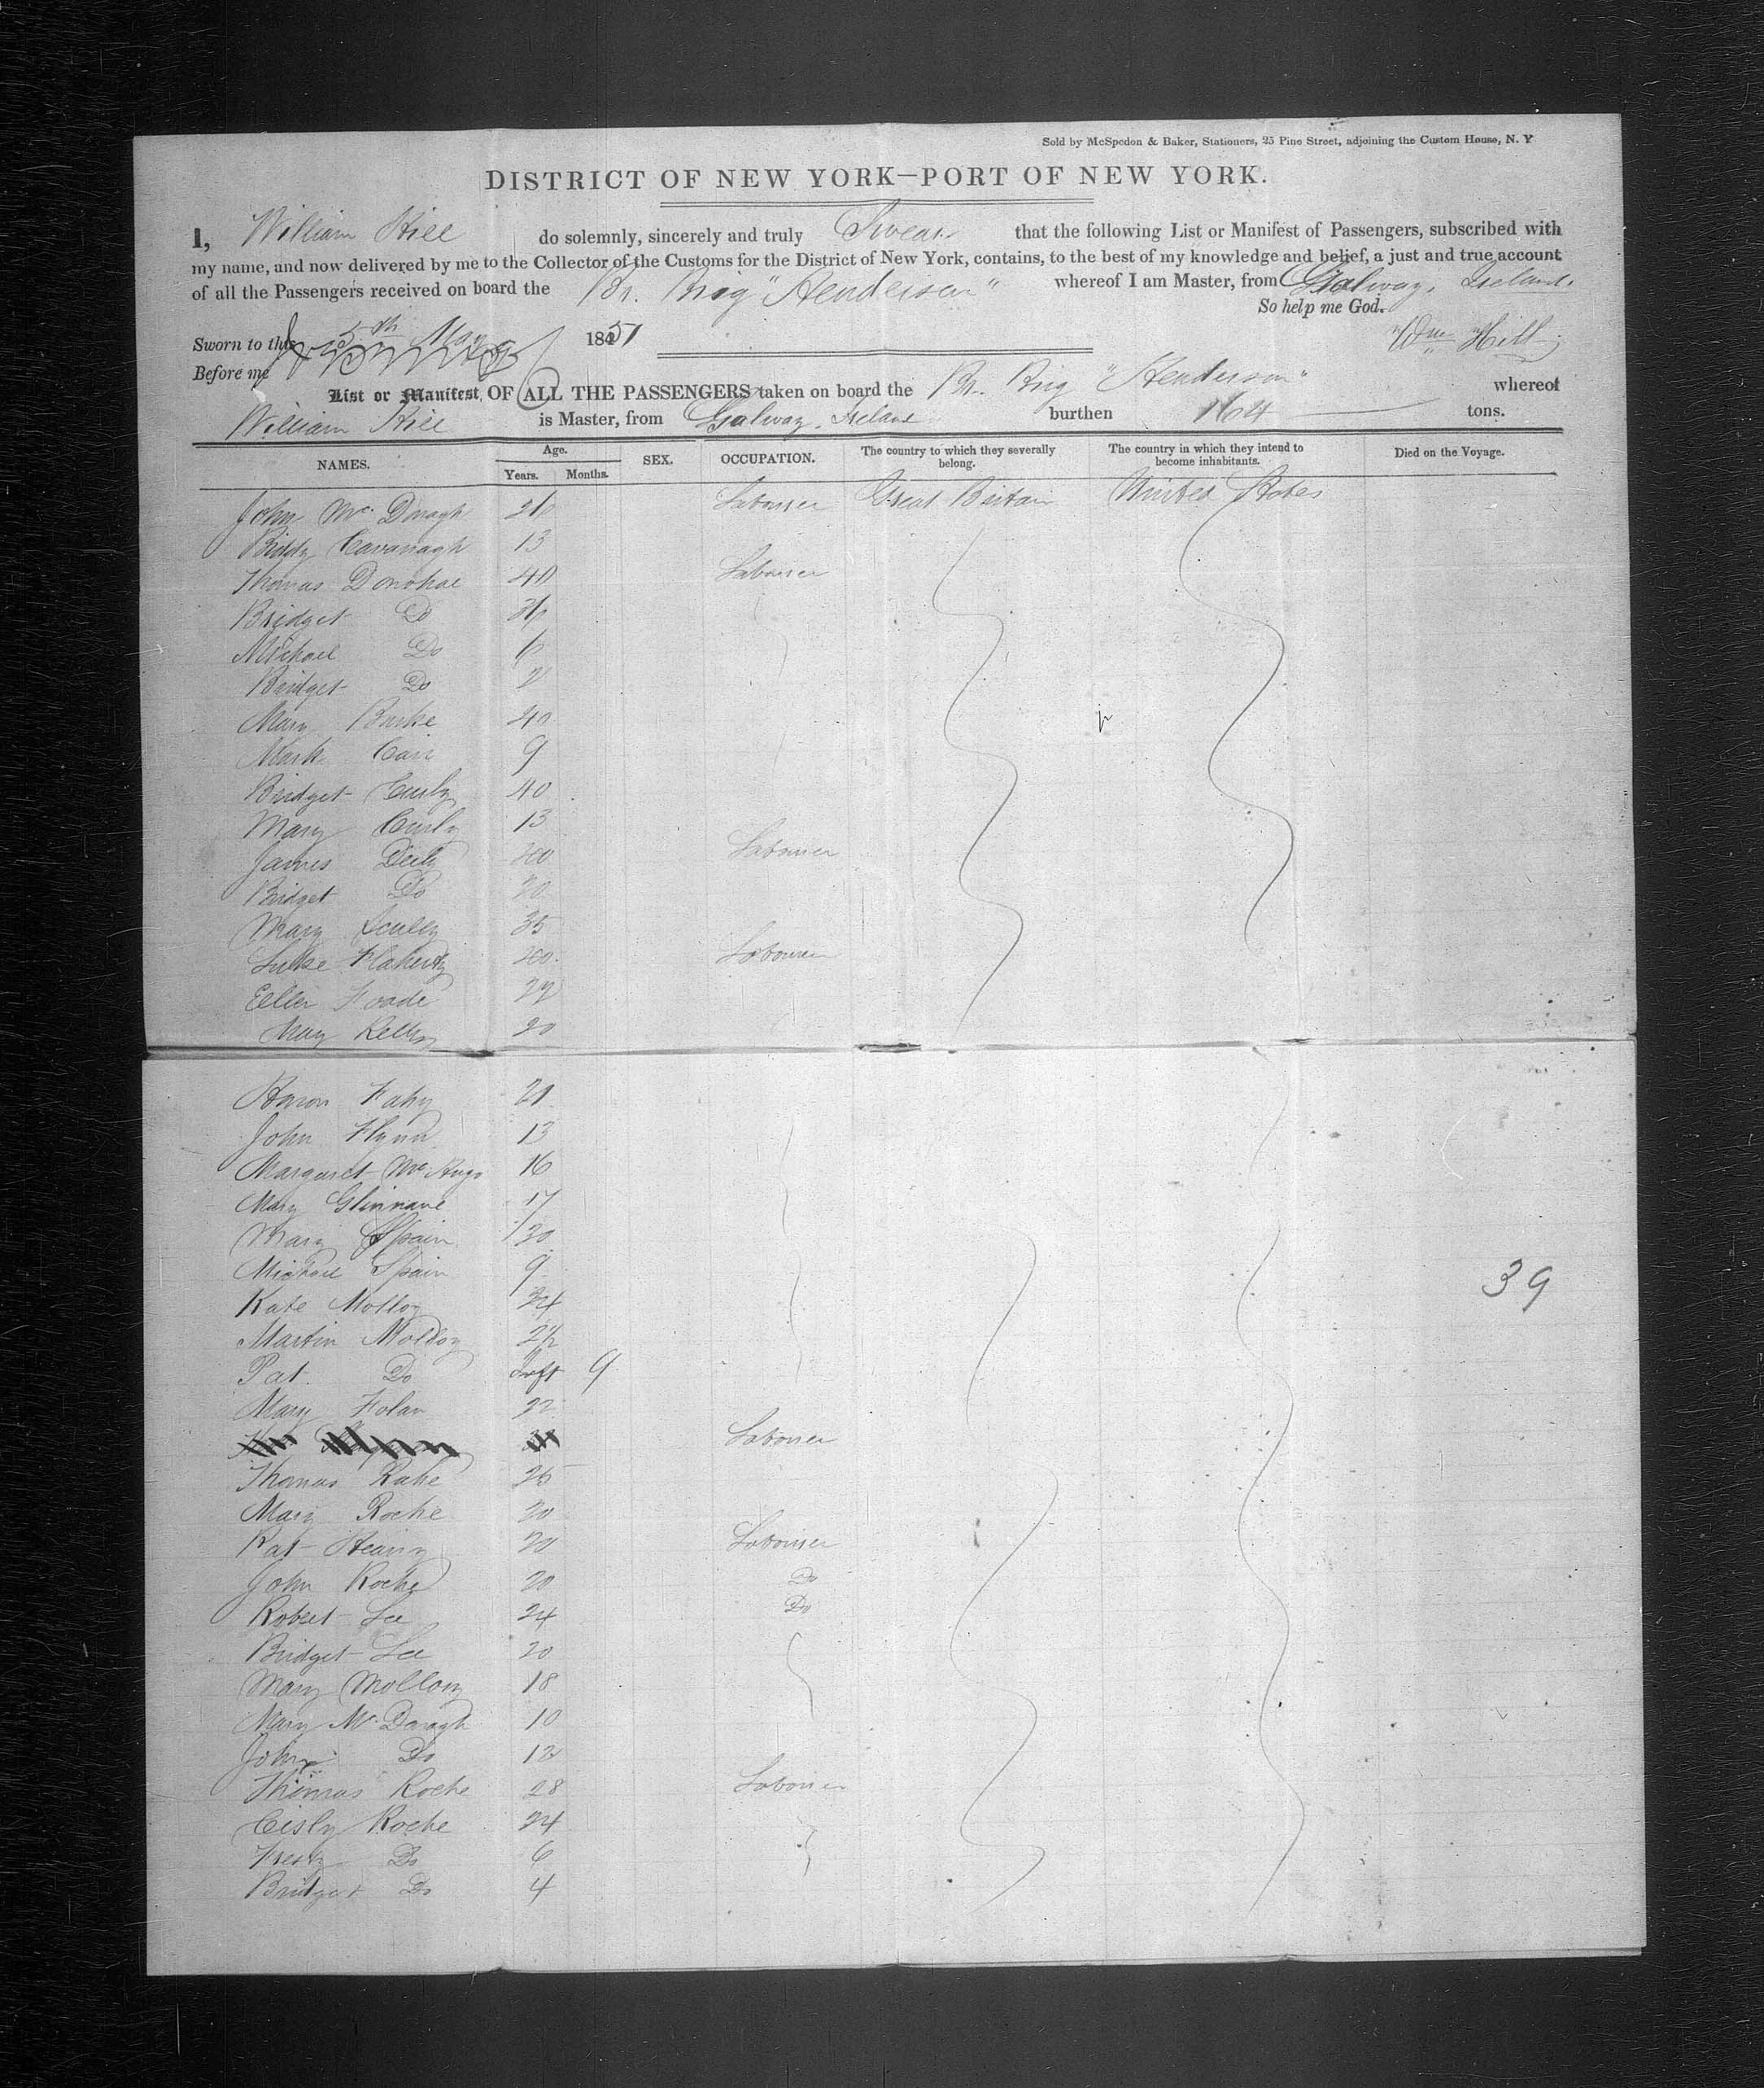 Sold by McSpedon & Baker, Stationers, 25 Pine Street, adjoining the Custom House, N. Y
DISTRICT OF NEW YORK—PORT OF NEW YORK.
I, William Hill do solemnly, sincerely and truly Swear that the following List or Manifest of Passengers, subscribed with
my name, and now delivered by me to the Collector of the Customs for the District of New York, contains, to the best of my knowledge and belief, a just and true account
of all the Passengers received on board the Br. Brig "Henderson" whereof I am Master, from Galway, Ireland.
So help me God.
Sworn to this 5th May 1851 Wm Hill
Before me
List or Manifest OF ALL THE PASSENGERS taken on board the Br. Brig "Henderson" whereof
William Hill is Master, from Galway, Ireland burthen 164 tons.
NAMES. Age. Years. Months. SEX. OCCUPATION. The country to which they severally belong. The country in which they intend to become inhabitants. Died on the Voyage.
John Mc. Donagh Labourer Great Britain United States
Biddy Cavanagh 13
Thomas Donohue 40 Labourer
Bridget Do
Michael Do 6
Bridget Do 2
Mary Burke 40
Mark Carr 9
Bridget Curly 40
Mary Curly 13
James Deely 20 Labourer
Bridget Do 20
Mary Scully 35
Luke Flaherty 20 Labourer
Ellen Foade 22
Mary Kelly 20
Honor Fahy 21
John Flynn 13
Margaret Mc Hugo 16
Mary Glinnane 17
Mary Spain 30
Michael Spain 9
Kate Molloy 24
Martin Molloy 2½
Pat Do Inft 9
39
Mary Folan 22
Labourer
Thomas Kahe 25
Mary Roche 20
Pat Heany 20 Labourer
John Roche 20 Do
Robert Lee 24 Do
Bridget Lee 20
Mary Molloy 18
Mary Mc. Donagh 10
John Do 12
Thomas Roche 28 Labourer
Cisly Roche 24
Do 6
Bridget Do 4